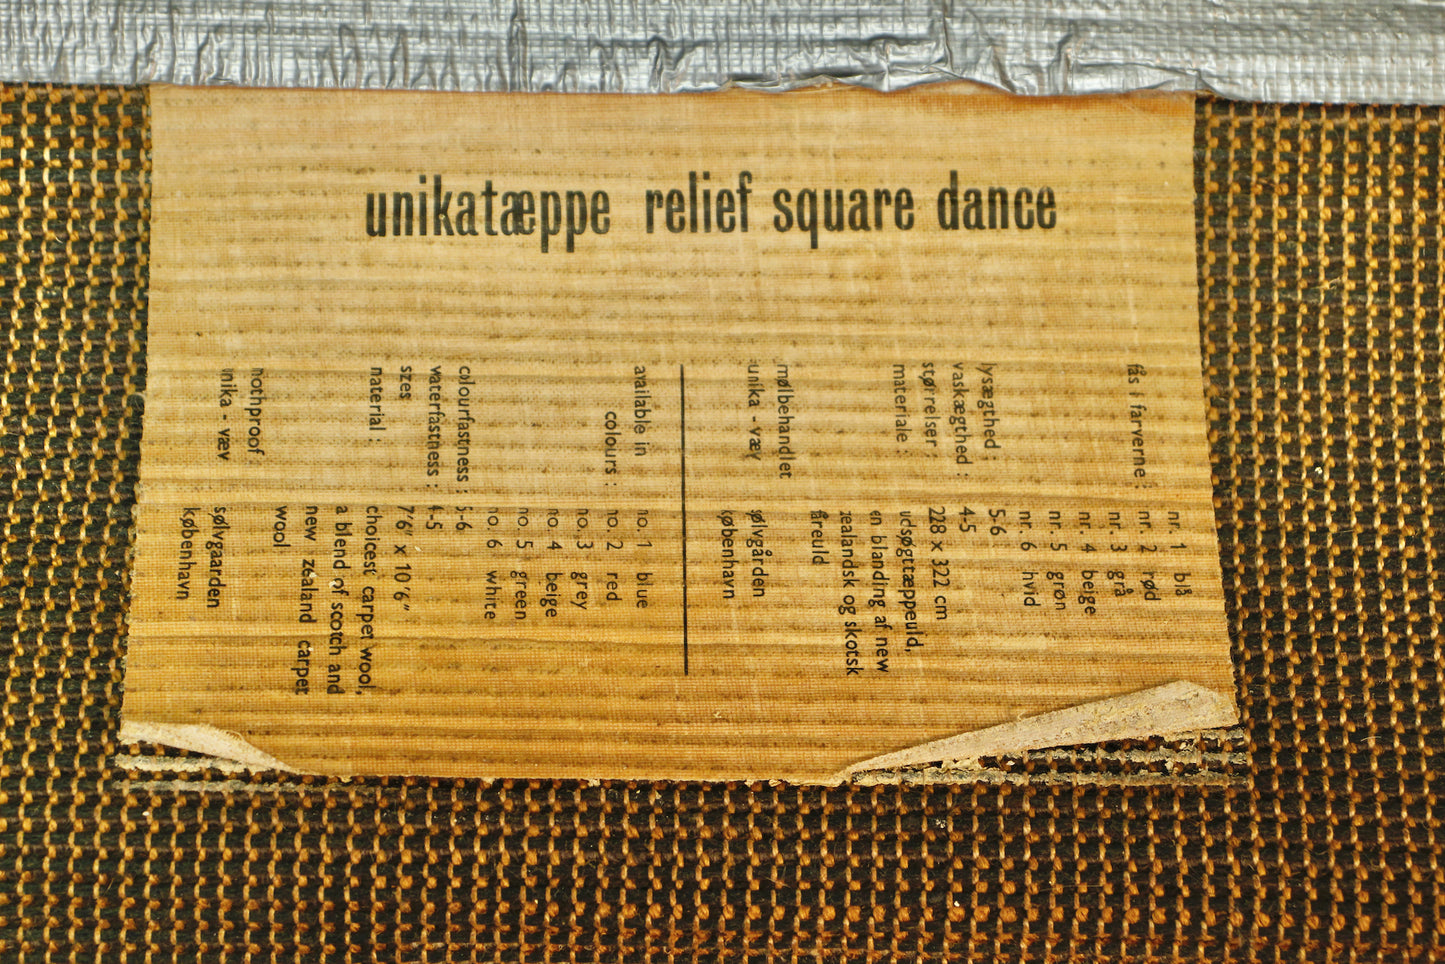 unikatæppe relief square dance
fås i farverne : nr. 1 blå
nr. 2 rød
nr. 3 grå
nr. 4 beige
nr. 5 grøn
nr. 6 hvid
lysægthed : 5-6
vaskægthed : 4-5
størrelser : 228 x 322 cm
materiale : udsøgttæppeuld,
en blanding af new
zealandsk og skotsk
fåreuld
mølbehandlet
unika - væv sølvgården
københavn
available in
colours : no. 1 blue
no. 2 red
no. 3 grey
no. 4 beige
no. 5 green
no. 6 white
colourfastness : 5-6
waterfastness : 4-5
szes 7'6" x 10'6"
material : choicest carpet wool,
a blend of scotch and
new zealand carpet
wool
mothproof :
unika - væv sølvgaarden
københavn